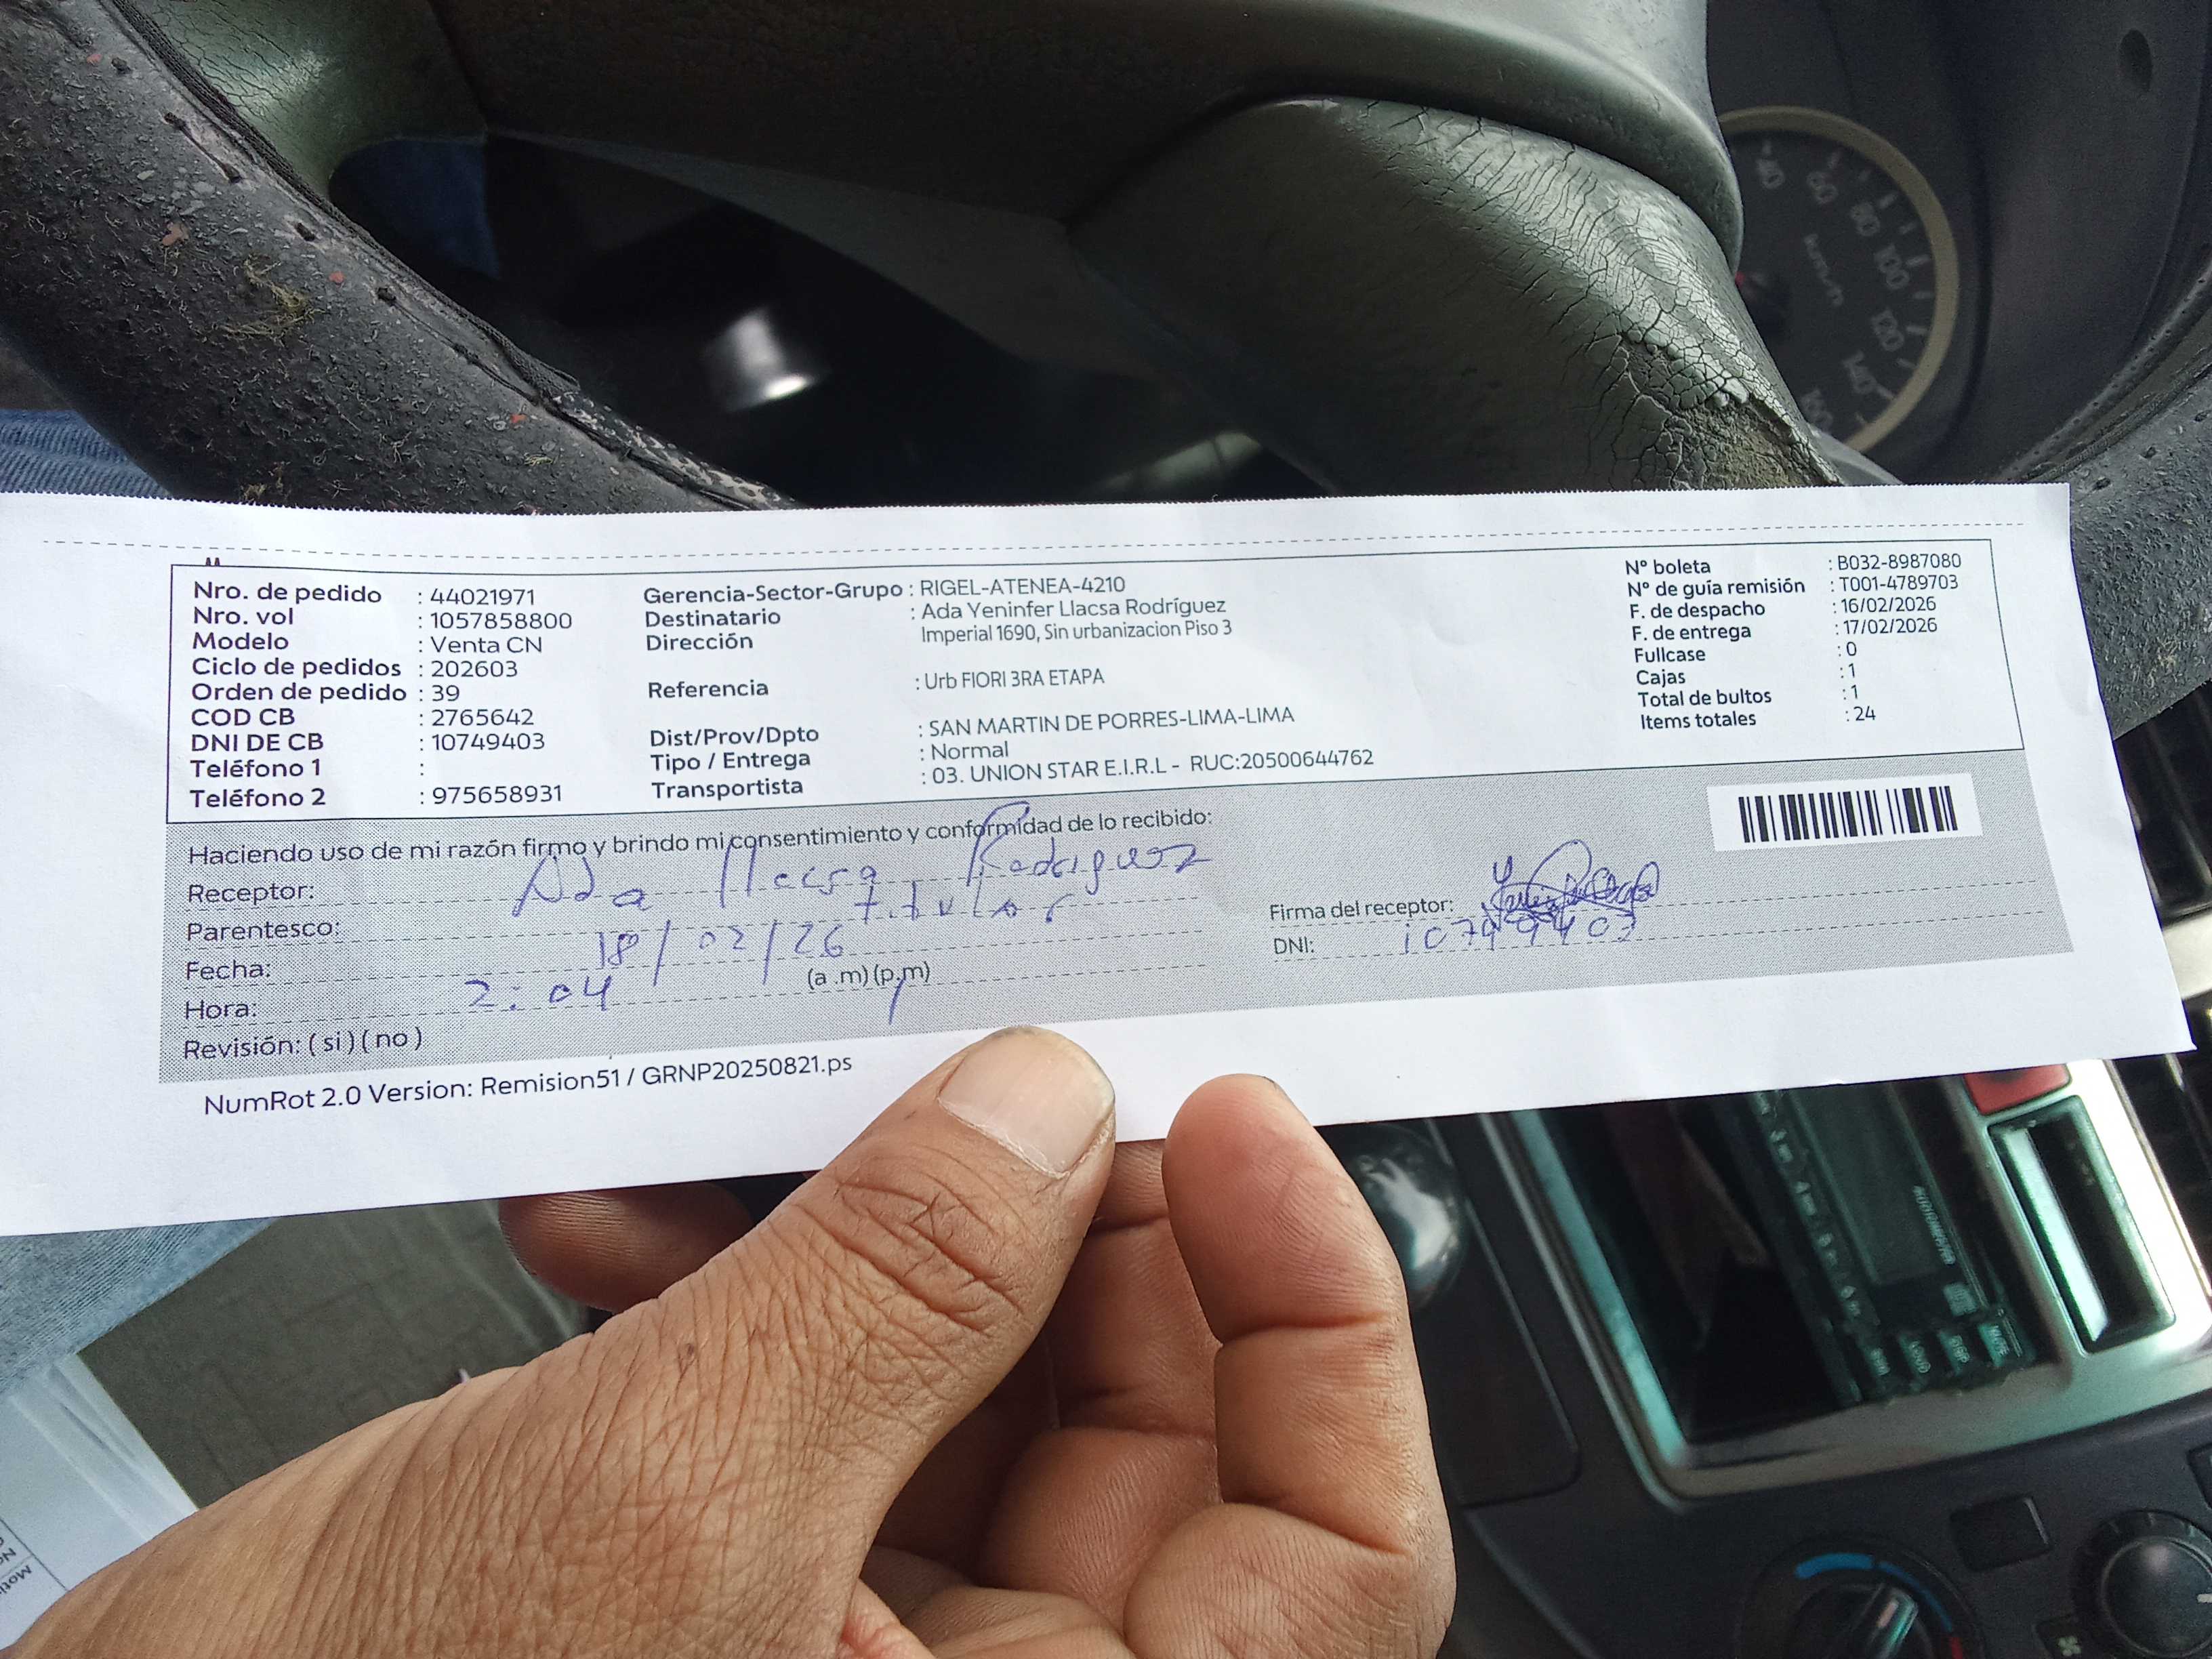 Nro. de pedido : 44021971
Nro. vol : 1057858800
Modelo : Venta CN
Ciclo de pedidos : 202603
Orden de pedido : 39
COD CB : 2765642
DNI DE CB : 10749403
Teléfono 1 :
Teléfono 2 : 975658931
Gerencia-Sector-Grupo : RIGEL-ATENEA-4210
Destinatario : Ada Yeninfer Llacsa Rodríguez
Dirección Imperial 1690, Sin urbanizacion Piso 3
Referencia : Urb FIORI 3RA ETAPA
Dist/Prov/Dpto : SAN MARTIN DE PORRES-LIMA-LIMA
Tipo / Entrega : Normal
Transportista : 03. UNION STAR E.I.R.L - RUC:20500644762
N° boleta : B032-8987080
N° de guía remisión : T001-4789703
F. de despacho : 16/02/2026
F. de entrega : 17/02/2026
Fullcase : 0
Cajas : 1
Total de bultos : 1
Items totales : 24
Haciendo uso de mi razón firmo y brindo mi consentimiento y conformidad de lo recibido:
Receptor: Ada Llacsa Rodriguez
Parentesco: titular
Fecha: 18/02/26
Hora: 2:04 (a .m)(p.m)
Revisión: ( si ) ( no )
Firma del receptor:
DNI: 10749403
NumRot 2.0 Version: Remision51 / GRNP20250821.ps
40
60
80
100
120
140
km/h